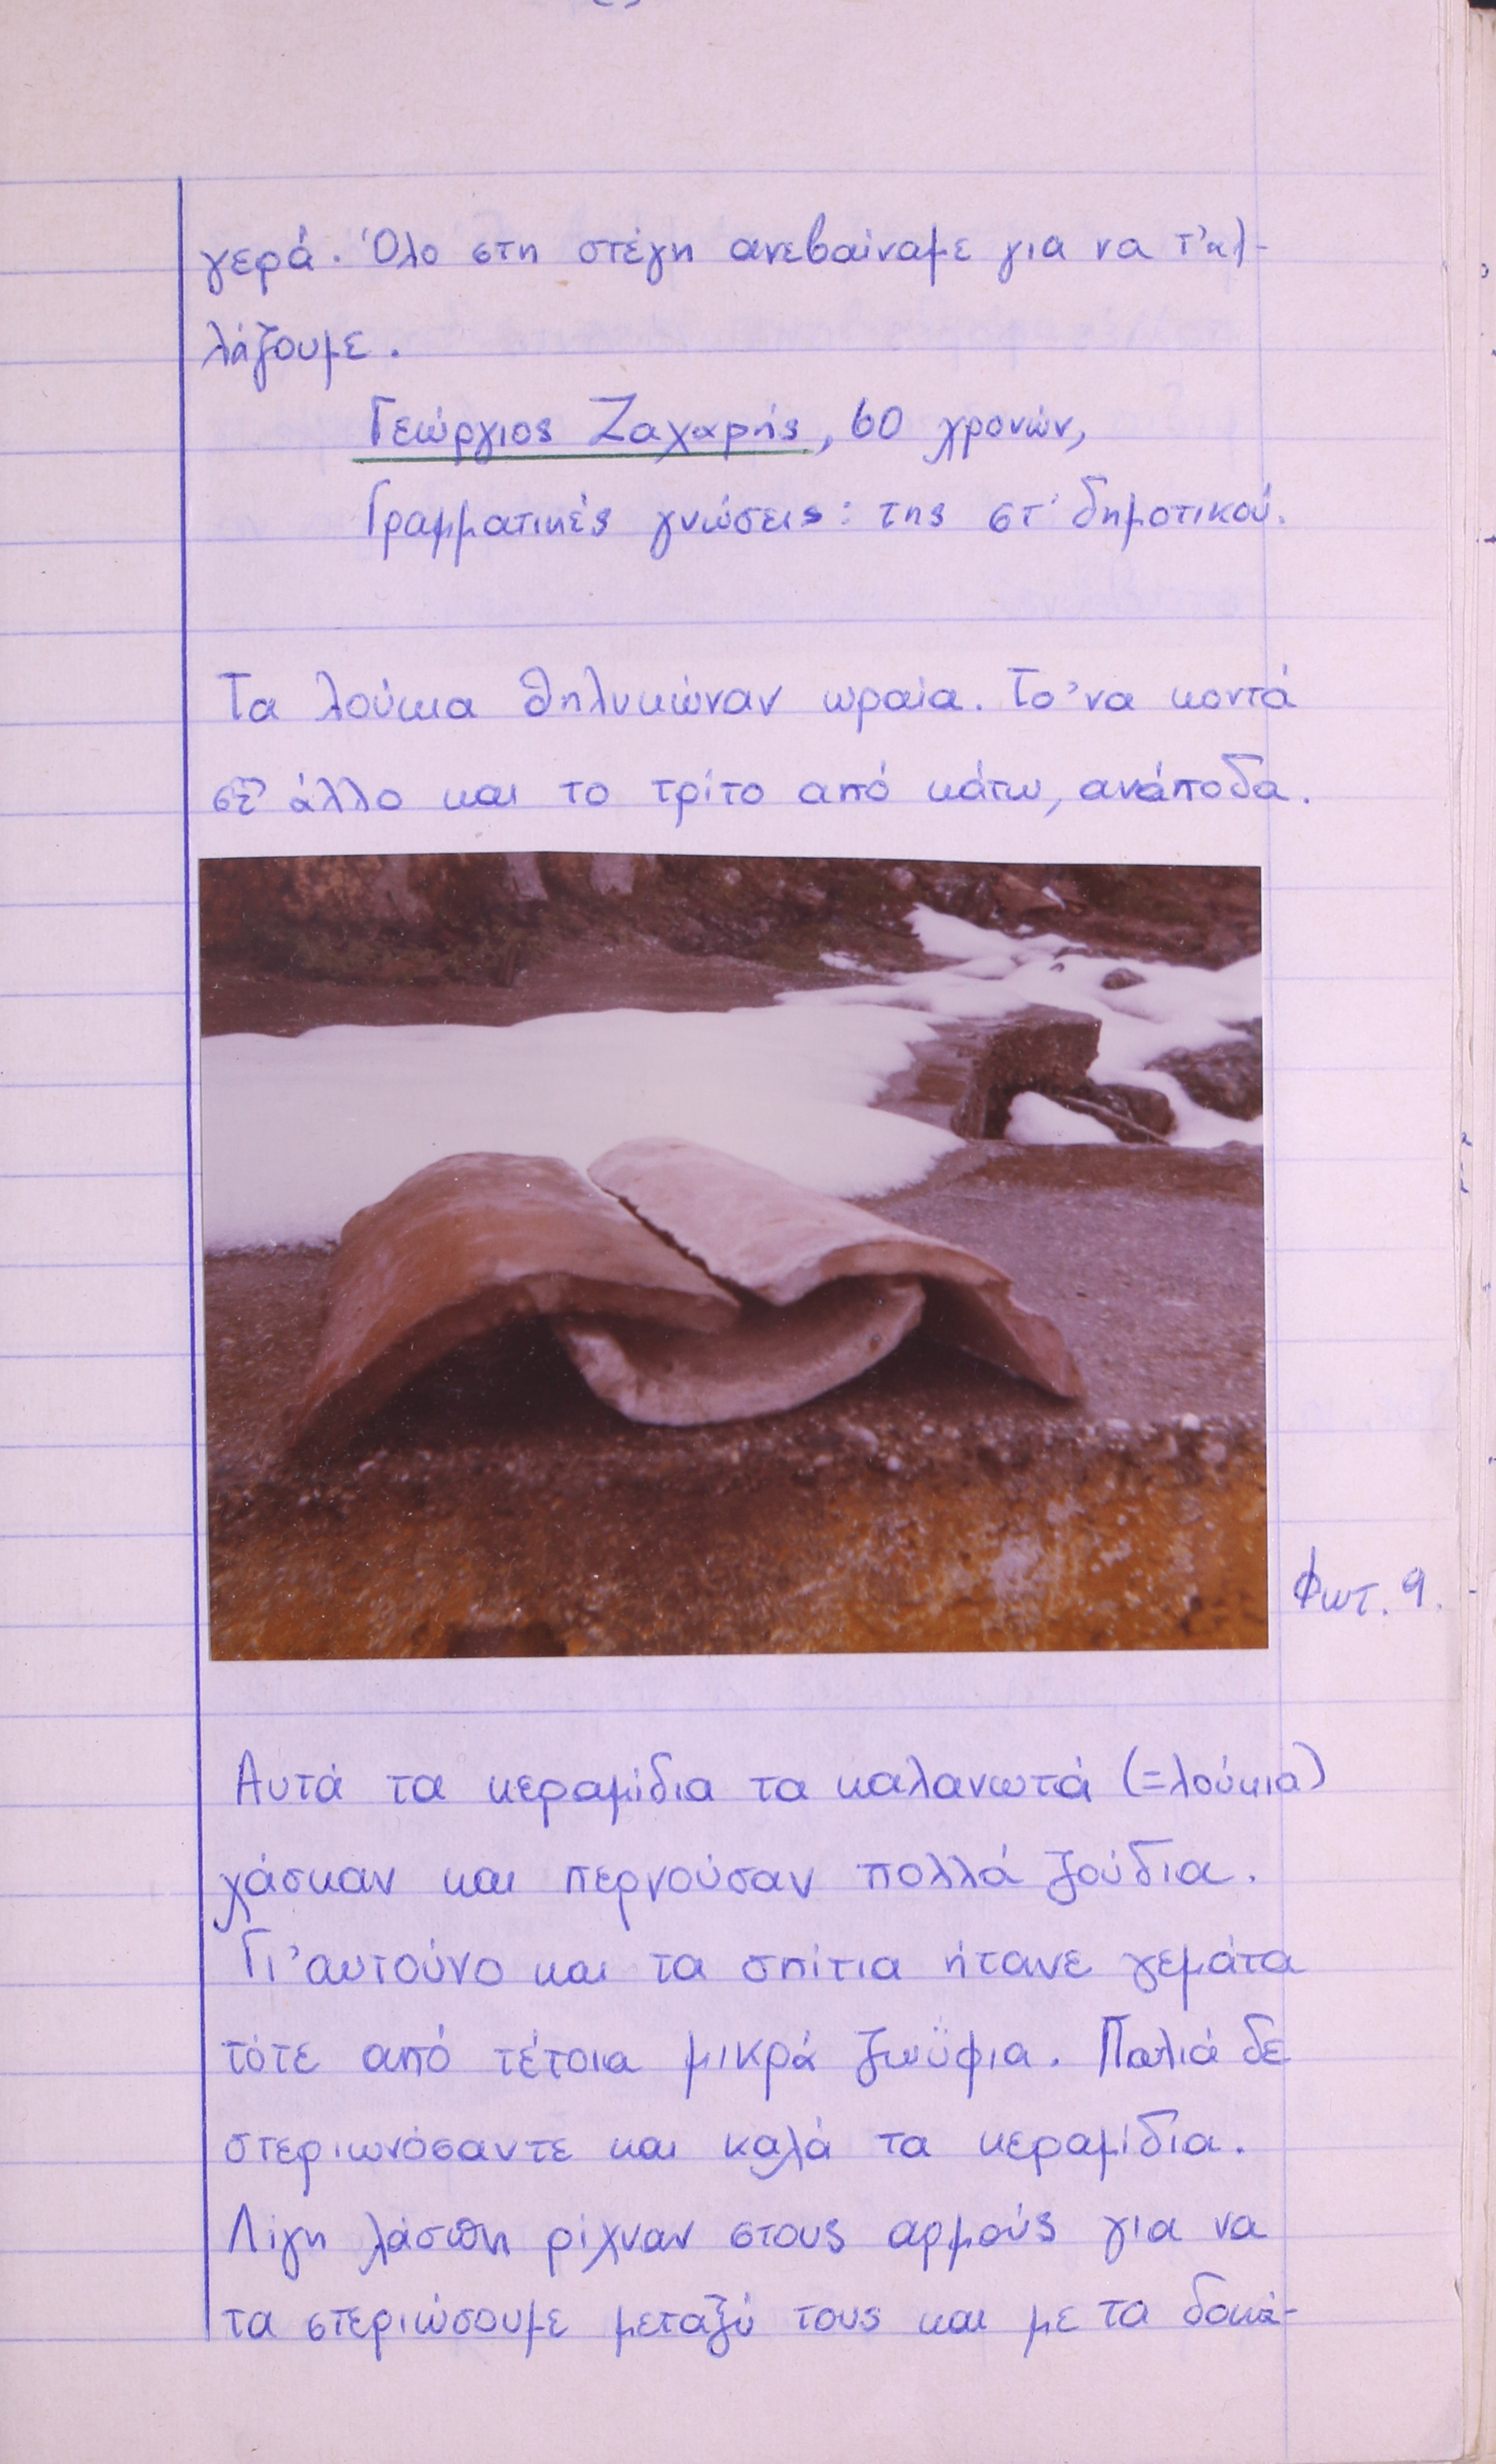 γερά. Όλο στη στέγη ανεβαίναμε για να τ'αλ-
λάζουμε.
Γεώργιος Ζαχαρής, 60 χρονών,
Γραμματικές γνώσεις: της στ' δημοτικού.
Τα λούκια θηλυκώναν ωραία. Το'να κοντά
στ' άλλο και το τρίτο από κάτω, ανάποδα.
Φωτ. 9.
Αυτά τα κεραμίδια τα καλανωτά (=λούκια)
χάσκαν και περνούσαν πολλά ζούδια.
Γι'αυτούνο και τα σπίτια ήτανε γεμάτα
τότε από τέτοια μικρά ζωΰφια. Παλιά δε
στεριωνόσαντε και καλά τα κεραμίδια.
Λίγη λάσπη ρίχναν στους αρμούς για να
τα στεριώσουμε μεταξύ τους και με τα δοκά-